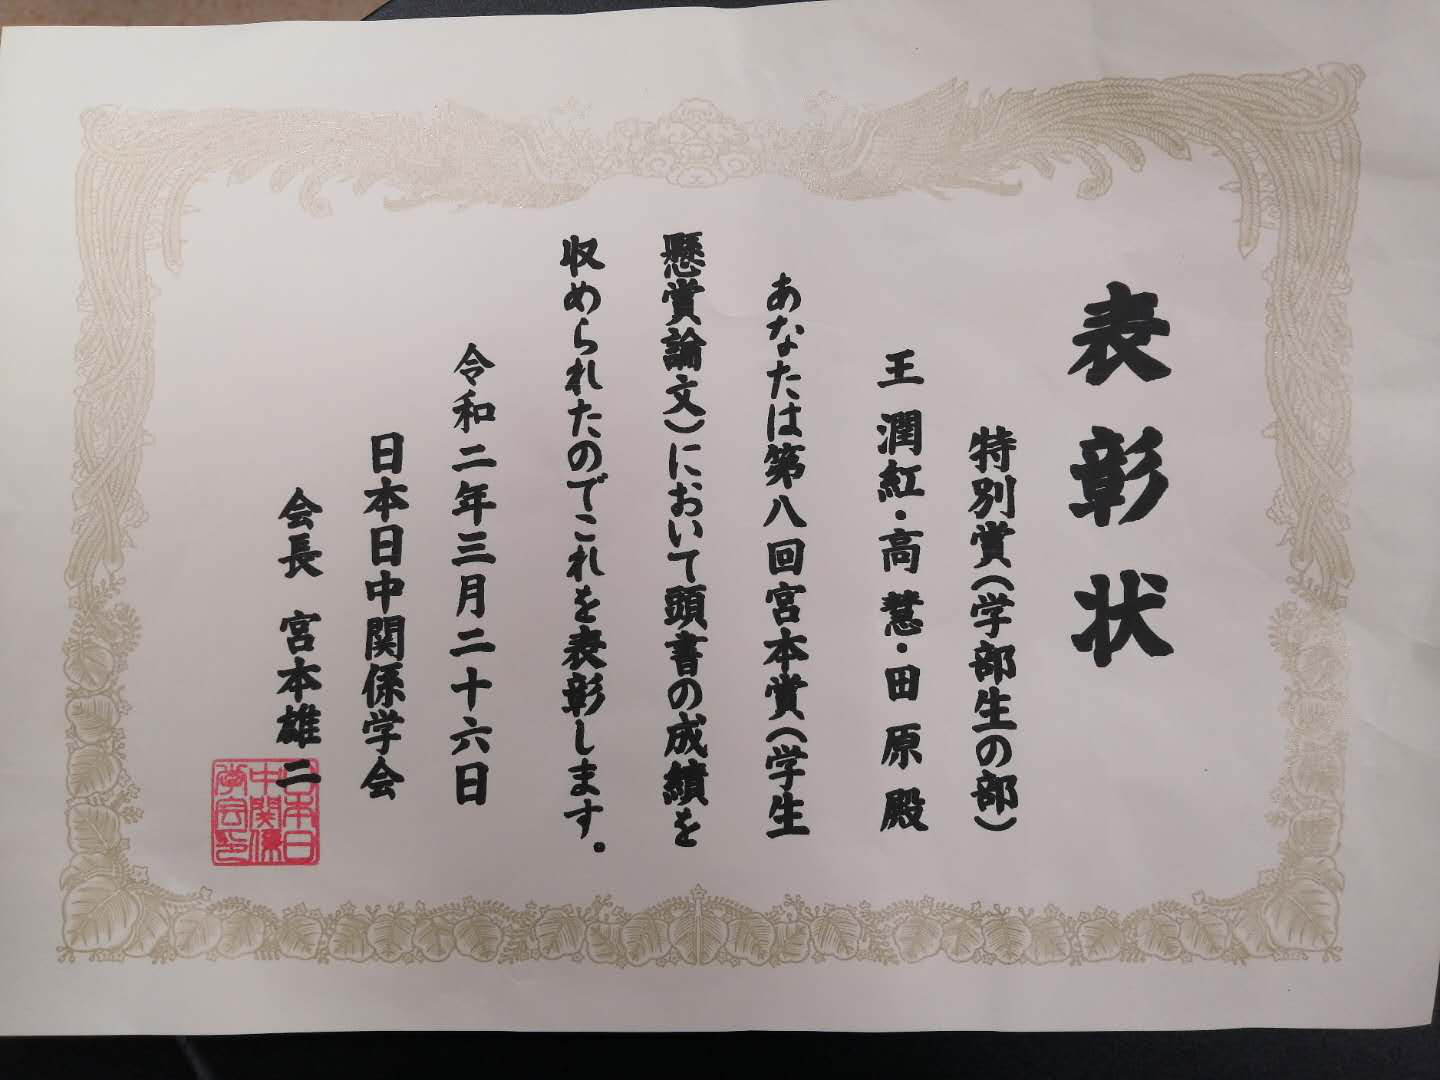 表彰状
特別賞(学部生の部)
王 潤紅・高 慧・田 原 殿
あなたは第八回宮本賞(学生
懸賞論文)において頭書の成績を
収められたのでこれを表彰します。
令和二年三月二十六日
日本日中関係学会
会長 宮本雄二
日本日
中関係
学会印